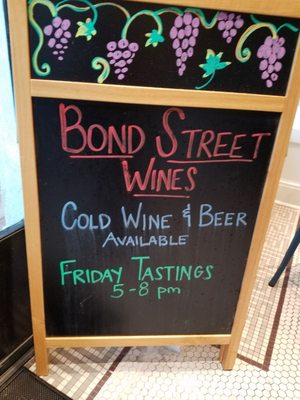 BOND STREET
WINES
COLD WINE & BEER
AVAILABLE
FRIDAY TASTINGS
5-8 pm